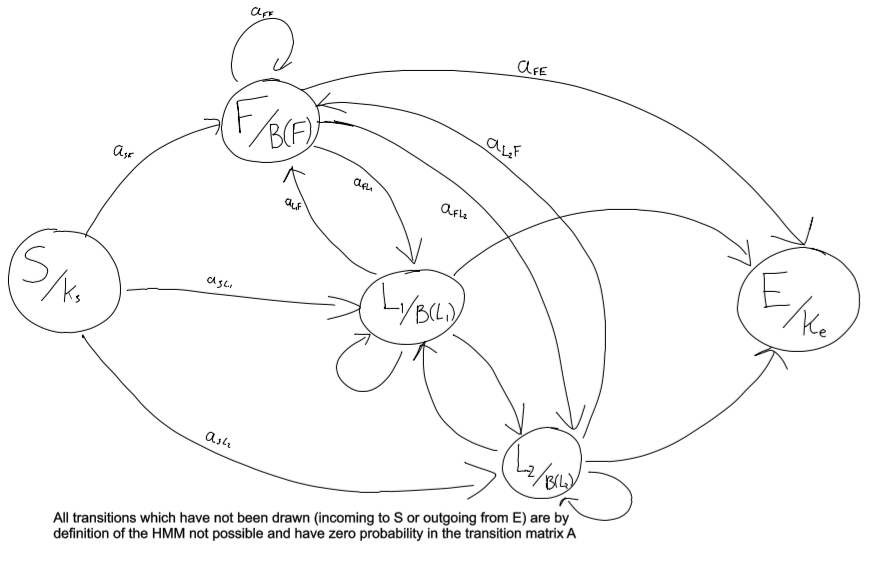 a_FF
a_FE
F/B(F)
a_SF
a_L₂F
a_FL₁
a_L₁F
a_FL₂
S/k_s
a_SL₁
L₁/B(L₁)
E/k_e
a_SL₂
L₂/B(L₂)
All transitions which have not been drawn (incoming to S or outgoing from E) are by
definition of the HMM not possible and have zero probability in the transition matrix A